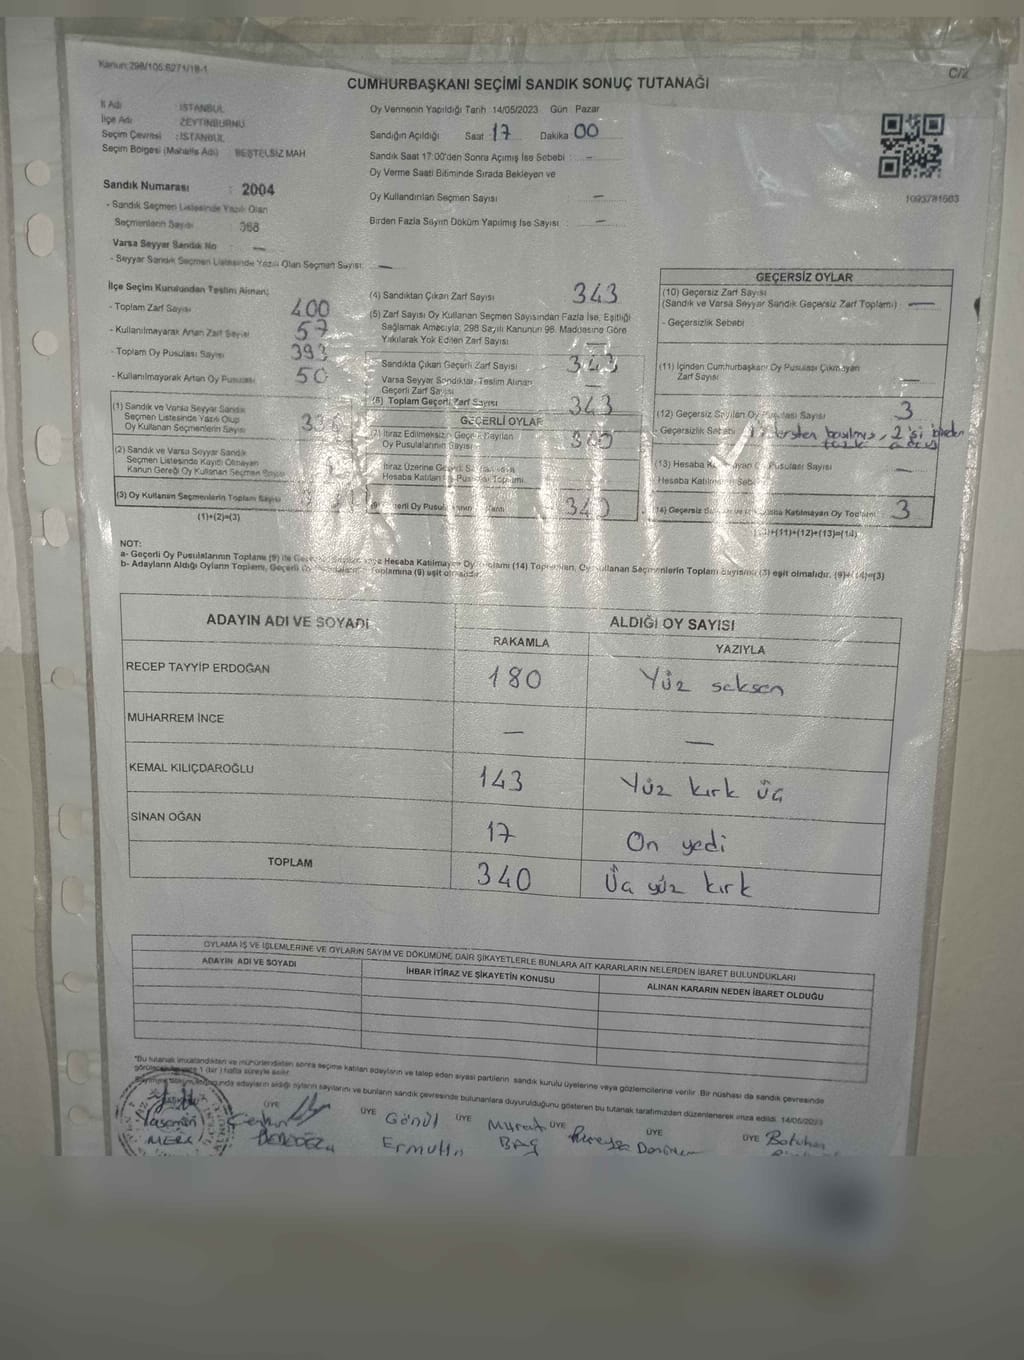 Kanun:298/105;6271/18-1
C/2
CUMHURBAŞKANI SEÇİMİ SANDIK SONUÇ TUTANAĞI
İl Adı : İSTANBUL
İlçe Adı : ZEYTİNBURNU
Seçim Çevresi : İSTANBUL
Seçim Bölgesi (Mahalle Adı) : BEŞTELSİZ MAH
Sandık Numarası : 2004
- Sandık Seçmen Listesinde Yazılı Olan
Seçmenlerin Sayısı : 368
Varsa Seyyar Sandık No —
- Seyyar Sandık Seçmen Listesinde Yazılı Olan Seçmen Sayısı: —
Oy Vermenin Yapıldığı Tarih :14/05/2023 Gün Pazar
Sandığın Açıldığı Saat :17 Dakika 00
Sandık Saat 17:00'den Sonra Açılmış İse Sebebi : —
Oy Verme Saati Bitiminde Sırada Bekleyen ve
Oy Kullandırılan Seçmen Sayısı —
Birden Fazla Sayım Döküm Yapılmış İse Sayısı : —
İlçe Seçim Kurulundan Teslim Alınan;
- Toplam Zarf Sayısı 400
- Kullanılmayarak Artan Zarf Sayısı 57
- Toplam Oy Pusulası Sayısı 393
- Kullanılmayarak Artan Oy Pusulası 50
(1) Sandık ve Varsa Seyyar Sandık
Seçmen Listesinde Yazılı Olup
Oy Kullanan Seçmenlerin Sayısı
(2) Sandık ve Varsa Seyyar Sandık
Seçmen Listesinde Kaydı Olmayan
Kanun Gereği Oy Kullanan Seçmen Sayısı
(3) Oy Kullanan Seçmenlerin Toplam Sayısı
(1)+(2)=(3)
(4) Sandıktan Çıkan Zarf Sayısı 343
(5) Zarf Sayısı Oy Kullanan Seçmen Sayısından Fazla İse, Eşitliği
Sağlamak Amacıyla, 298 Sayılı Kanunun 98. Maddesine Göre
Yakılarak Yok Edilen Zarf Sayısı —
Sandıkta Çıkan Geçerli Zarf Sayısı 343
Varsa Seyyar Sandıktan Teslim Alınan
Geçerli Zarf Sayısı —
(6) Toplam Geçerli Zarf Sayısı 343
GEÇERLİ OYLAR
(7) İtiraz Edilmeksizin Geçerli Sayılan
Oy Pusulalarının Sayısı 340
İtiraz Üzerine Geçerli
Hesaba Katılan Oy Pusulası Toplamı
340
GEÇERSİZ OYLAR
(10) Geçersiz Zarf Sayısı
(Sandık ve Varsa Seyyar Sandık Geçersiz Zarf Toplamı) : —
- Geçersizlik Sebebi
(11) İçinden Cumhurbaşkanı Oy Pusulası Çıkmayan
Zarf Sayısı —
(12) Geçersiz Sayılan Oy Pusulası Sayısı 3
- Geçersizlik Sebebi 1'i tersten basılmış, 2'si birden
(13) Hesaba Katılmayan Oy Pusulası Sayısı —
Hesaba Katılmama Sebebi
(14) Geçersiz Sayılan ve Hesaba Katılmayan Oy Toplamı 3
(10)+(11)+(12)+(13)=(14)
NOT:
a- Geçerli Oy Pusulalarının Toplamı (9) ile Geçersiz Sayılan veya Hesaba Katılmayan Oy Toplamı (14) Toplamları, Oy Kullanan Seçmenlerin Toplam Sayısına (3) eşit olmalıdır. (9)+(14)=(3)
b- Adayların Aldığı Oyların Toplamı, Geçerli Oy Pusulalarının Toplamına (9) eşit olmalıdır.
ADAYIN ADI VE SOYADI
ALDIĞI OY SAYISI
RAKAMLA YAZIYLA
RECEP TAYYİP ERDOĞAN 180 Yüz seksen
MUHARREM İNCE — —
KEMAL KILIÇDAROĞLU 143 Yüz kırk üç
SİNAN OĞAN 17 On yedi
TOPLAM 340 Üç yüz kırk
OYLAMA İŞ VE İŞLEMLERİNE VE OYLARIN SAYIM VE DÖKÜMÜNE DAİR ŞİKAYETLERLE BUNLARA AİT KARARLARIN NELERDEN İBARET BULUNDUKLARI
ADAYIN ADI VE SOYADI İHBAR İTİRAZ VE ŞİKAYETİN KONUSU ALINAN KARARIN NEDEN İBARET OLDUĞU
*Bu tutanak imzalandıktan ve mühürlendikten sonra seçime katılan adayların ve talep eden siyasi partilerin sandık kurulu üyelerine veya gözlemcilerine verilir. Bir nüshası da sandık çevresinde
görülecek bir yere 1 (bir) hafta süreyle asılır.
Seçime katılan adayların aldığı oyların sayılarını ve bunların sandık çevresinde bulunanlara duyurulduğunu gösteren bu tutanak tarafımızdan düzenlenerek imza edildi. 14/05/2023
ÜYE ÜYE ÜYE ÜYE ÜYE ÜYE
Yasemin Gönül Murat Batuhan
BAĞ